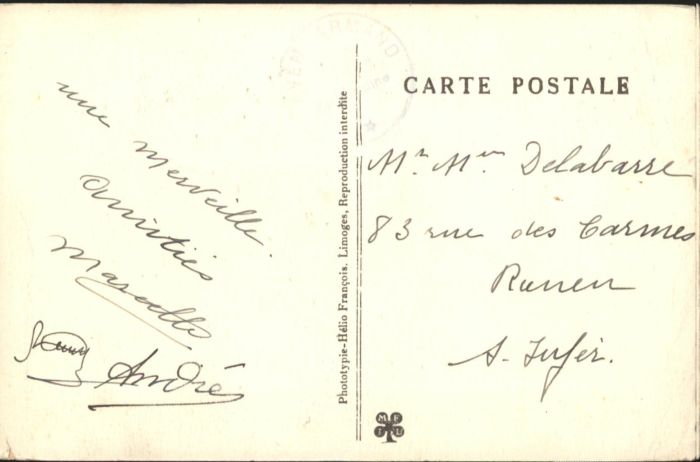 une
merveille.
Amitiés
Marcelle
André
Phototypie-Hélio François, Limoges, Reproduction interdite
ARMAND
CARTE POSTALE
Mr Mme Delabarre
83 rue des Carmes
Rouen
S. Infér.
M F
I L